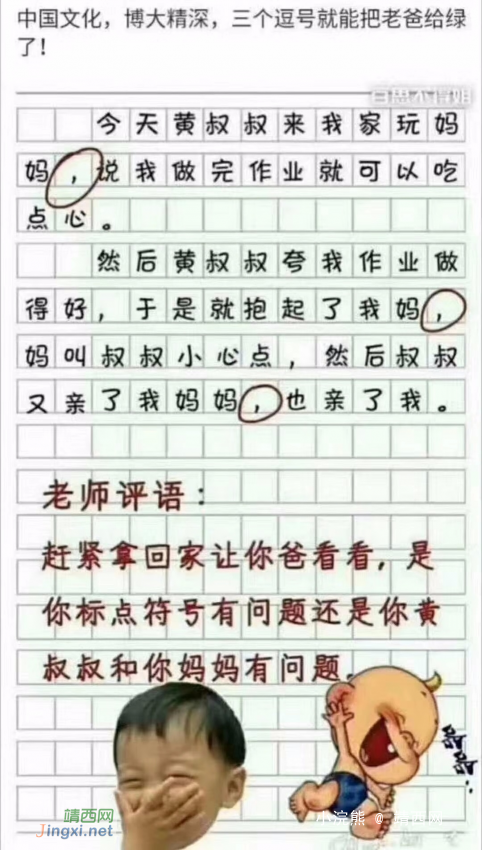 中国文化，博大精深，三个逗号就能把老爸给绿
了！
百思不得姐
今天黄叔叔来我家玩妈
妈，说我做完作业就可以吃
点心。
然后黄叔叔夸我作业做
得好，于是就抱起了我妈，
妈叫叔叔小心点，然后叔叔
又亲了我妈妈，也亲了我。
老师评语：
赶紧拿回家让你爸看看，是
你标点符号有问题还是你黄
叔叔和你妈妈有问题.
哈哈
靖西网
Jingxi.net
小浣熊 @ 靖西网